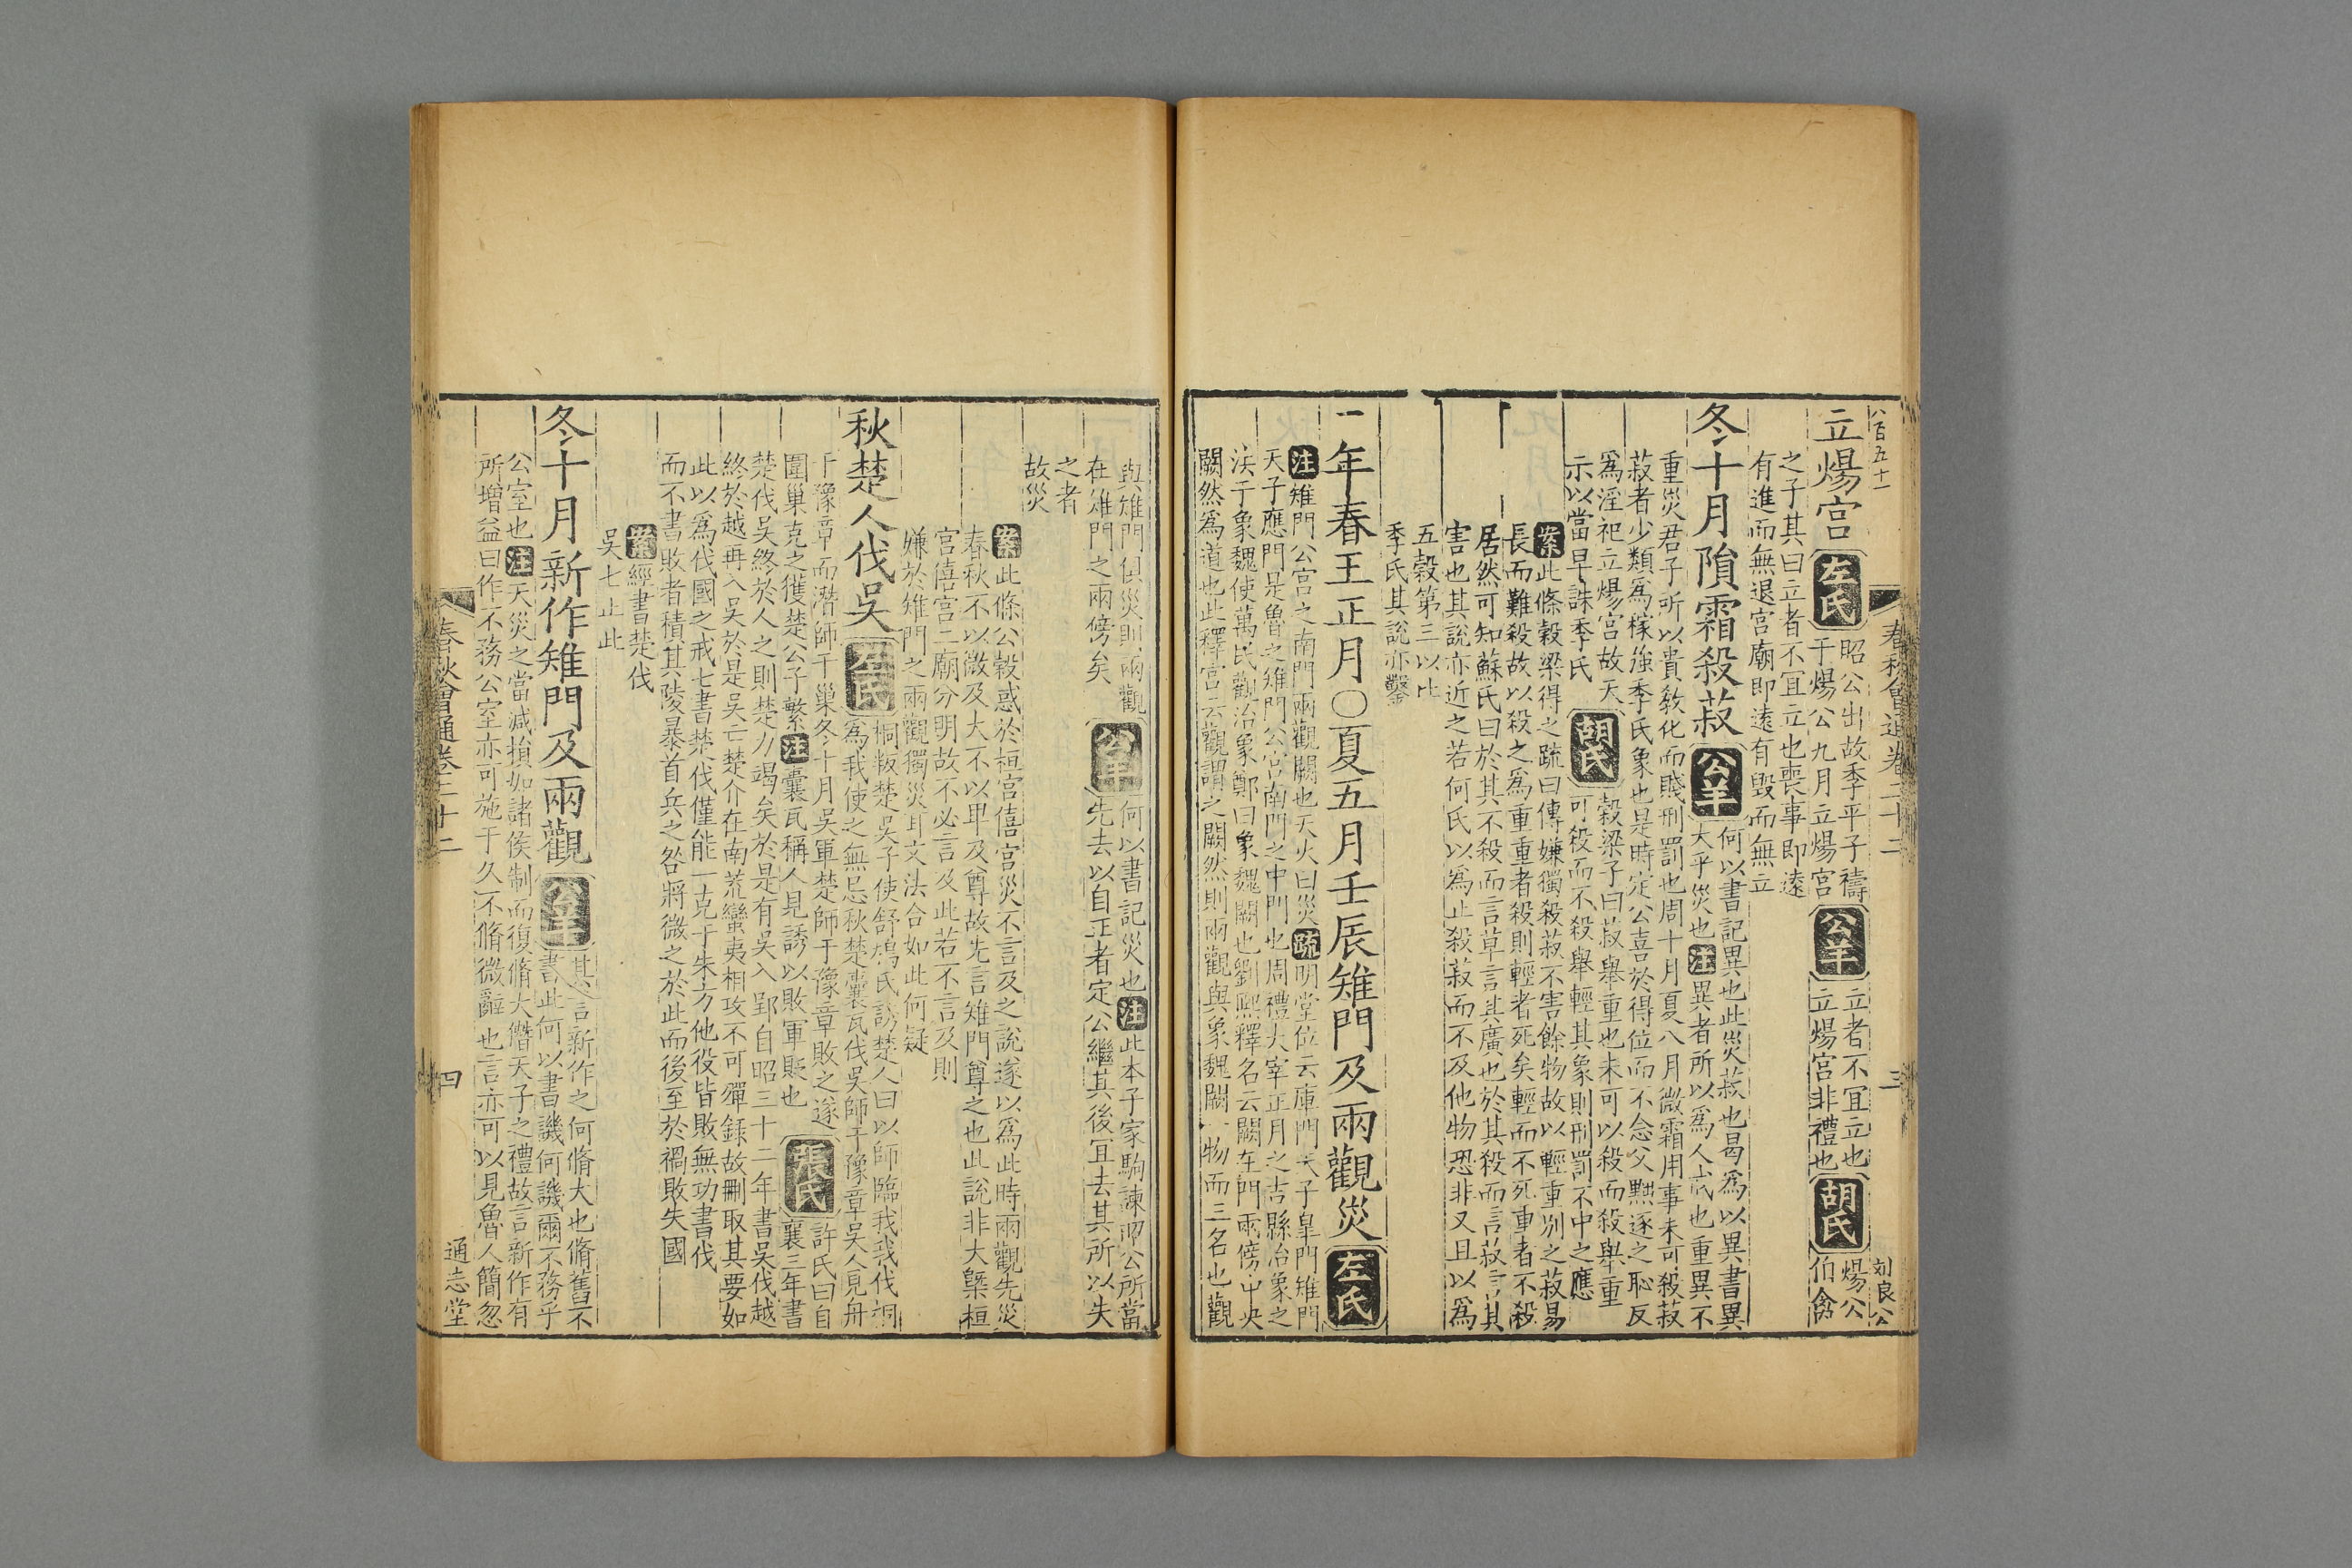 八百五十一
春秋會通卷二十二
三
刘良公
立煬宮 左氏 昭公出故季平子禱
于煬公九月立煬宮 公羊 立者不宜立也
立煬宮非禮也 胡氏 煬公
伯禽
之子其曰立者不宜立也喪事即遠
有進而無退宮廟即遠有毀而無立
冬十月隕霜殺菽 公羊 何以書記異也此災菽也曷爲以異書異
大乎災也 注 異者所以爲人戒也重異不
重災君子所以貴教化而賤刑罰也周十月夏八月微霜用事未可殺菽
菽者少類爲稼强季氏象也是時定公喜於得位而不念父黜逐之恥反
爲淫祀立煬宮故天
示以當早誅季氏 胡氏 穀梁子曰菽舉重也未可以殺而殺舉重
可殺而不殺舉輕其象則刑罰不中之應
案 此條穀梁得之疏曰傳嫌獨殺菽不害餘物故以輕重別之菽易
長而難殺故以殺之爲重重者殺則輕者死矣輕而不死重者不殺
居然可知蘇氏曰於其不殺而言草言其廣也於其殺而言菽言其
害也其說亦近之若何氏以爲止殺菽而不及他物恐非又且以爲
五穀第三以比
季氏其說亦鑿
二年春王正月○夏五月壬辰雉門及兩觀災 左氏
注 雉門公宮之南門兩觀闕也天火曰災 疏 明堂位云庫門天子皐門雉門
天子應門是魯之雉門公宮南門之中門也周禮大宰正月之吉縣治象之
法于象魏使萬民觀治象鄭曰象魏闕也劉熙釋名云闕在門兩傍中央
闕然爲道也此釋宮云觀謂之闕然則兩觀與象魏闕一物而三名也觀
與雉門俱災則兩觀
在雉門之兩傍矣 公羊 何以書記災也 注 此本子家駒諫昭公所當
先去以自正者定公繼其後宜去其所以失
之者
故災
案 此條公穀惑於桓宮僖宮災不言及之說遂以爲此時兩觀先災
春秋不以微及大不以卑及尊故先言雉門尊之也此說非大槩桓
宮僖宮二廟分明故不必言及此若不言及則
嫌於雉門之兩觀獨災耳文法合如此何疑
秋楚人伐吳 左氏 桐叛楚吳子使舒鳩氏誘楚人曰以師臨我我伐桐
爲我使之無忌秋楚囊瓦伐吳師于豫章吳人見舟
于豫章而潛師于巢冬十月吳軍楚師于豫章敗之遂
圍巢克之獲楚公子繁 注 囊瓦稱人見誘以敗軍貶也 張氏 許氏曰自
襄三年書
楚伐吳終於人之則楚力竭矣於是有吳入郢自昭三十二年書吳伐越
終於越再入吳於是吳亡楚介在南荒蠻夷相攻不可殫錄故刪取其要如
此以爲伐國之戒七書楚伐僅能一克于朱方他役皆敗無功書伐
而不書敗者積其陵暴首兵之咎將微之於此而後至於禍敗失國
案 經書楚伐
吳七止此
冬十月新作雉門及兩觀 公羊 其言新作之何脩大也脩舊不
書此何以書譏何譏爾不務乎
公室也 注 天災之當減損如諸侯制而復脩大僭天子之禮故言新作有
所增益曰作不務公室亦可施于久不脩微辭也言亦可以見魯人簡忽
春秋會通卷二十二
四
通志堂